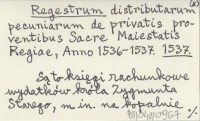 Regestrum distributarum (2)
pecuniarum de privatis pro-
ventibus Sacre Maiestatis
Regiae, Anno 1536-1537. 1537.
Są to księgi rachunkowe
wydatków króla Zygmunta
Starego, m. in. na kopalnie